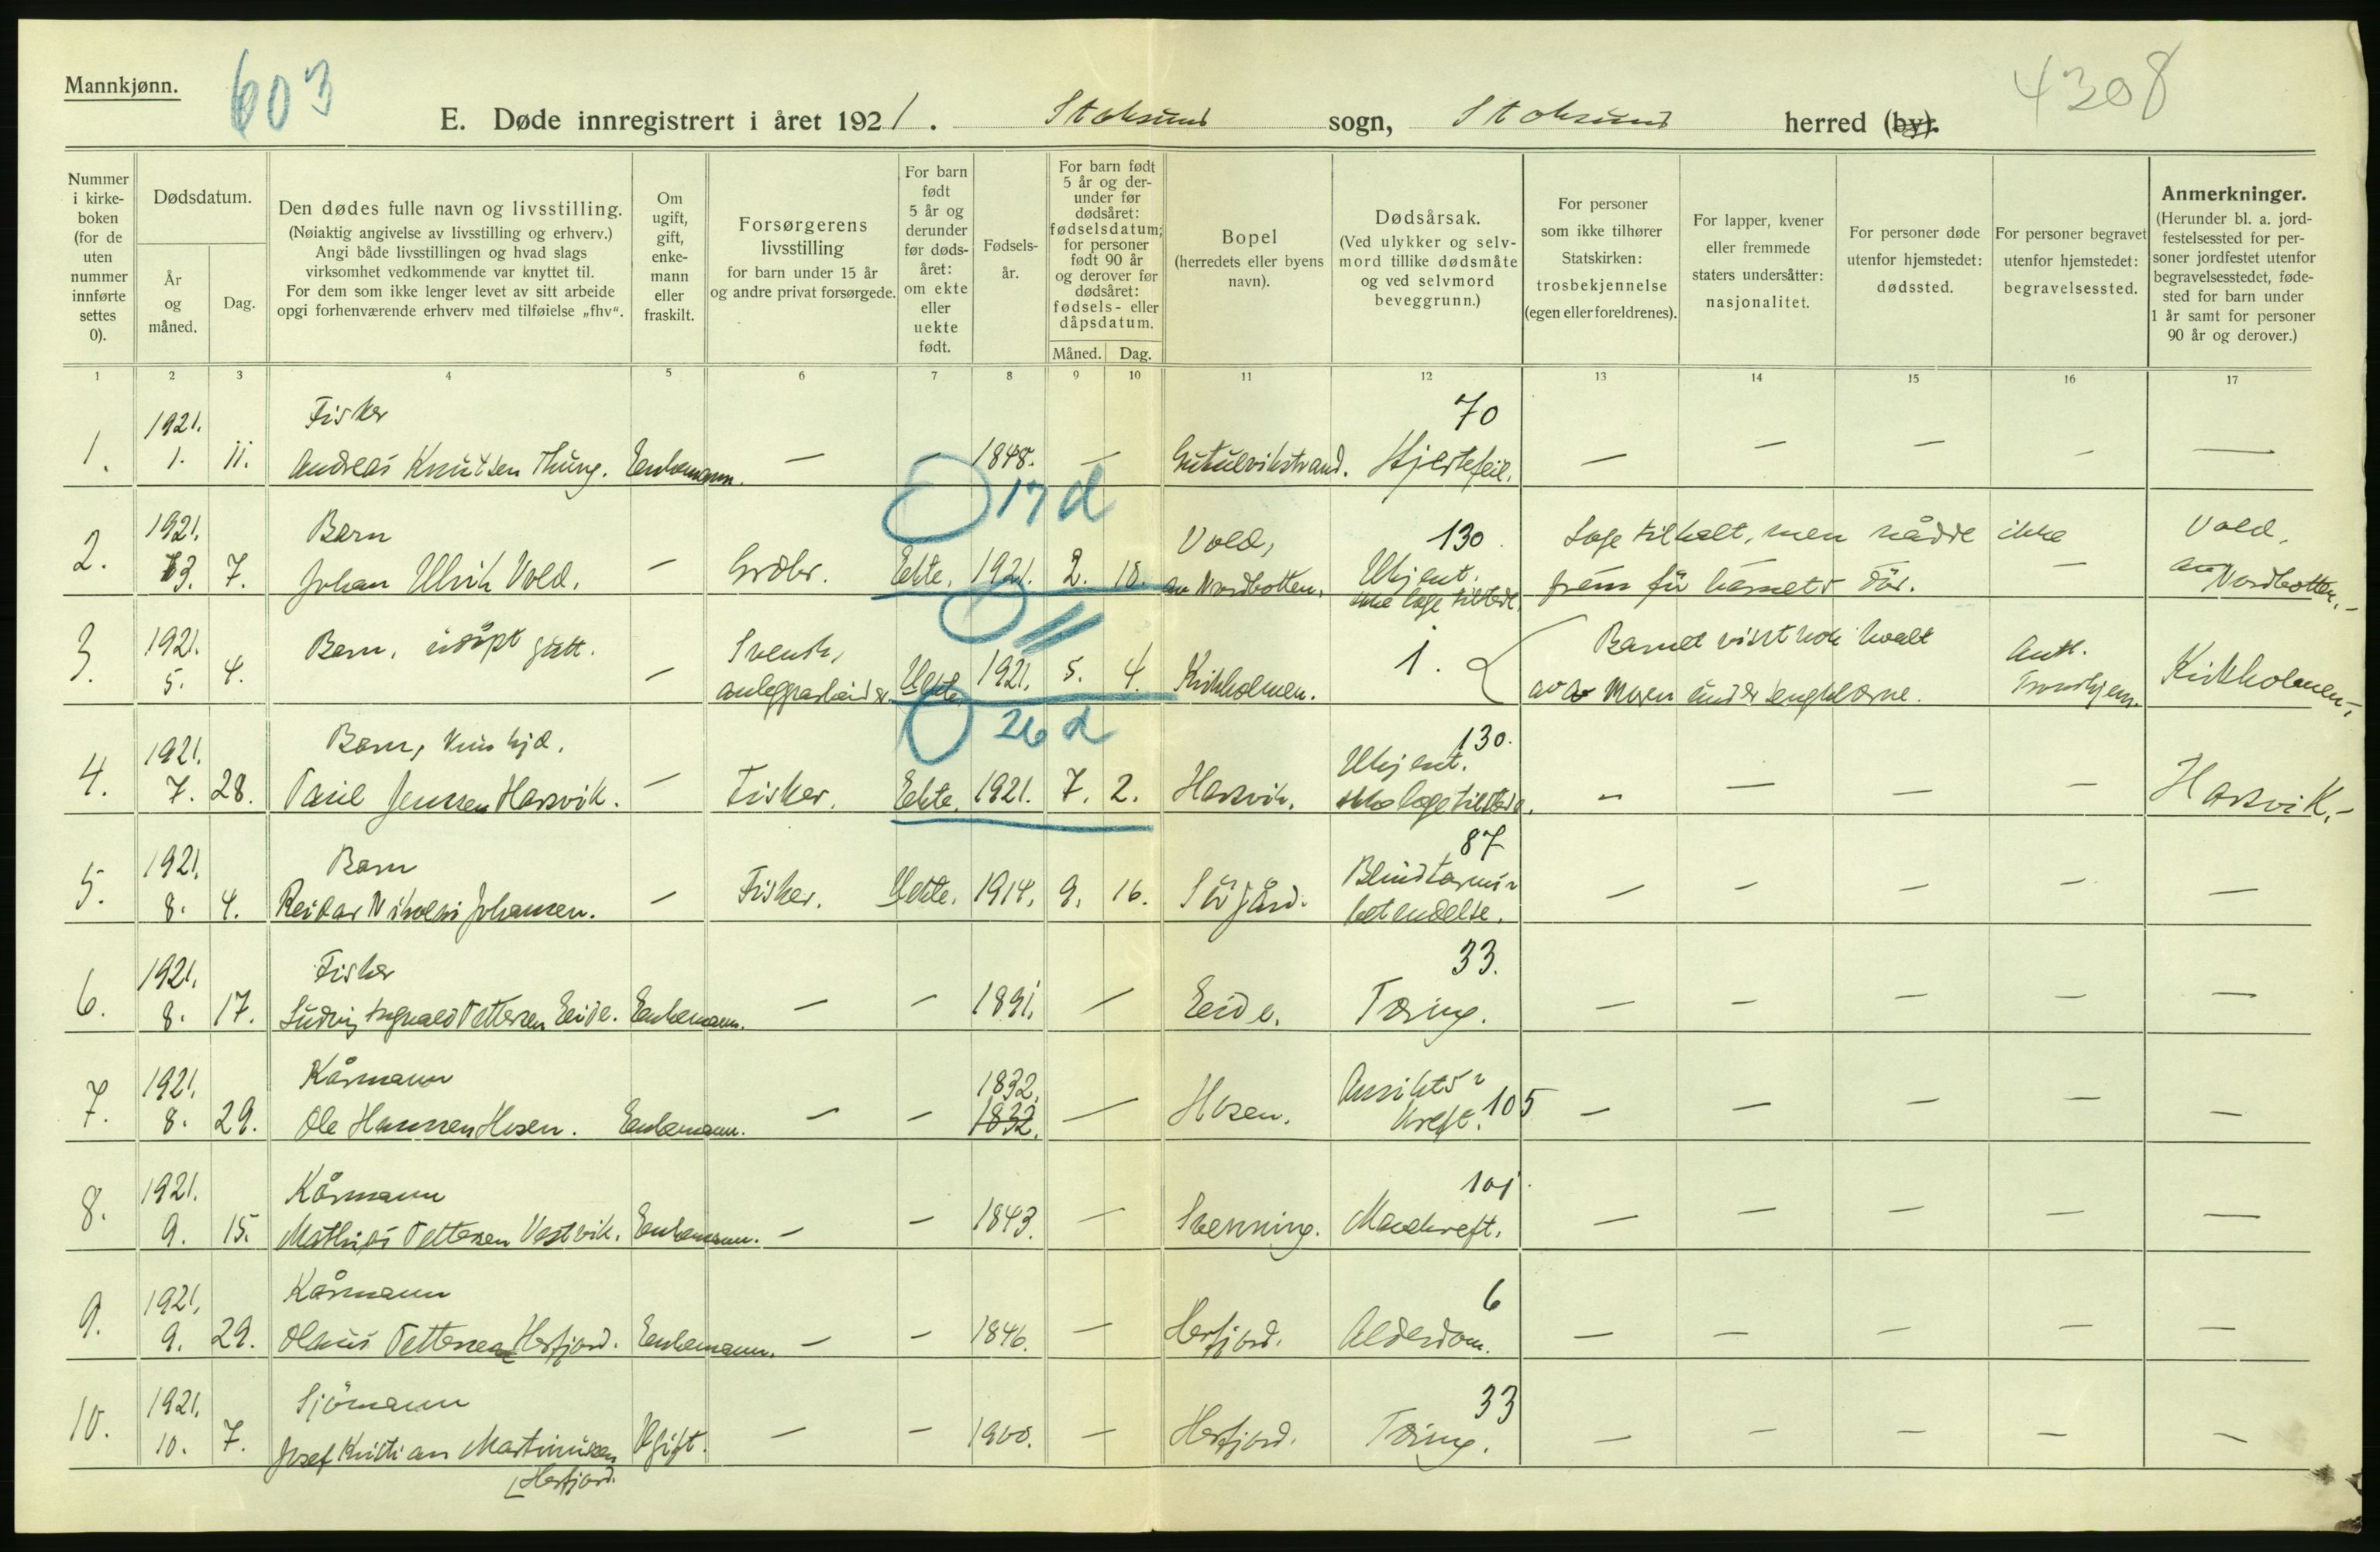 Mannkjønn.
603
4308
E. Døde innregistrert i året 1921. Stoksund sogn, Stoksund herred (by).
Nummer i kirkeboken (for de uten nummer innførte settes 0).
Dødsdatum.
År og måned.
Dag.
Den dødes fulle navn og livsstilling.
(Nøiaktig angivelse av livsstilling og erhverv.)
Angi både livsstillingen og hvad slags
virksomhet vedkommende var knyttet til.
For dem som ikke lenger levet av sitt arbeide
opgi forhenværende erhverv med tilføielse „fhv“.
Om ugift, gift, enkemann eller fraskilt.
Forsørgerens livsstilling
for barn under 15 år
og andre privat forsørgede.
For barn født 5 år og derunder før dødsåret: om ekte eller uekte født.
Fødselsår.
For barn født 5 år og derunder før dødsåret: fødselsdatum; for personer født 90 år og derover før dødsåret: fødsels- eller dåpsdatum.
Måned. Dag.
Bopel
(herredets eller byens navn).
Dødsårsak.
(Ved ulykker og selvmord tillike dødsmåte og ved selvmord beveggrunn.)
For personer som ikke tilhører Statskirken: trosbekjennelse (egen eller foreldrenes).
For lapper, kvener eller fremmede staters undersåtter: nasjonalitet.
For personer døde utenfor hjemstedet: dødssted.
For personer begravet utenfor hjemstedet: begravelsessted.
Anmerkninger.
(Herunder bl. a. jordfestelsessted for personer jordfestet utenfor begravelsesstedet, fødested for barn under 1 år samt for personer 90 år og derover.)
1 2 3 4 5 6 7 8 9 10 11 12 13 14 15 16 17
1921. Fisker 70
1. 1. 11. Andreas Knutsen Thung. Enkemann. — — 1848. — Hjertefeil. — — — — —
17 d
1921. Barn Vold, 130. Læge tilkalt, men nådde ikke Vold,
2. 3. 7. Johan Ulrik Vold. — Grdbr. Ekte. 1921. 2. 18. av Nordbotten. Ukjent. frem før barnets død. — av Nordbotten.
ikke læge tilstede.
1921. Barn, udøpt gutt. Svensk, Barnet visst nok kvalt Ant.
3. 5. 4. — anleggsarbeider. Uekte. 1921. 5. 4. Kirkholmen. 1. av moren under sengklærne. Trondhjem. Kirkholmen.
26 d
1921. Barn, 130.
4. 7. 28. Paul Jensen Harsvik. — Fisker. Ekte. 1921. 7. 2. Harsvik. Ukjent. — — — — Harsvik.
ikke læge tilstede.
1921. Barn 87
5. 8. 4. Reidar Nikolai Johansen. — Fisker. Uekte. 1914. 9. 16. Sørgård. Blindtarmsbetendelse. — — — — —
1921. Fisker 33.
6. 8. 17. Ludvig Pettersen Eide. Enkemann. — — 1891. — Eide. Tæring. — — — — —
1921. Kårmann 1832. Ansikts-
7. 8. 29. Ole Hansen Hosen. Enkemann. — — 1832. — Hosen. kreft. 105 — — — — —
1921. Kårmann 101.
8. 9. 15. Mathias Pettersen Vestvik. Enkemann. — — 1843. — Svenning. Mavekreft. — — — — —
1921. Kårmann 6
9. 9. 29. Olaus Pettersen Herfjord. Enkemann. — — 1846. — Herfjord. Alderdom. — — — — —
1921. Sjömann 33
10. 10. 7. Josef Kristian Martinusen Ugift. — — 1900. — Herfjord. Tæring. — — — — —
Herfjord.